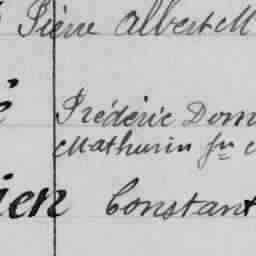 Pierre Albert M
Frédéric Dom
Mathurin fu
ien Constant